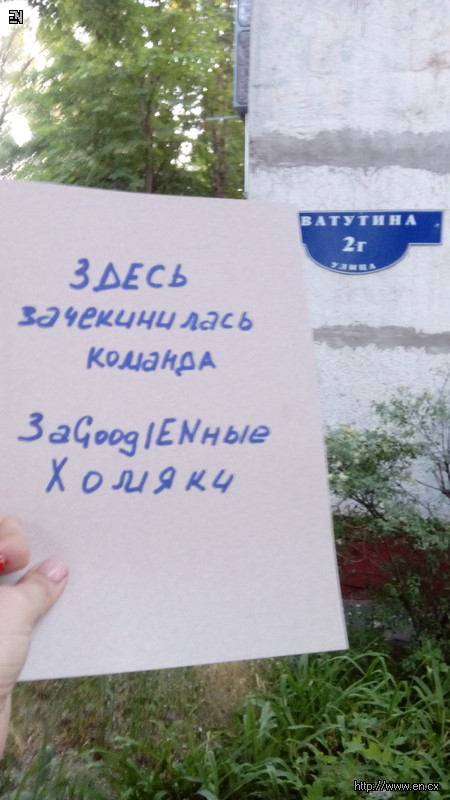 EN
ВАТУТИНА
2г
УЛИЦА
ЗДЕСЬ
зачекинилась
команда
ЗаGooglENные
Хомяки
http://www.en.cx